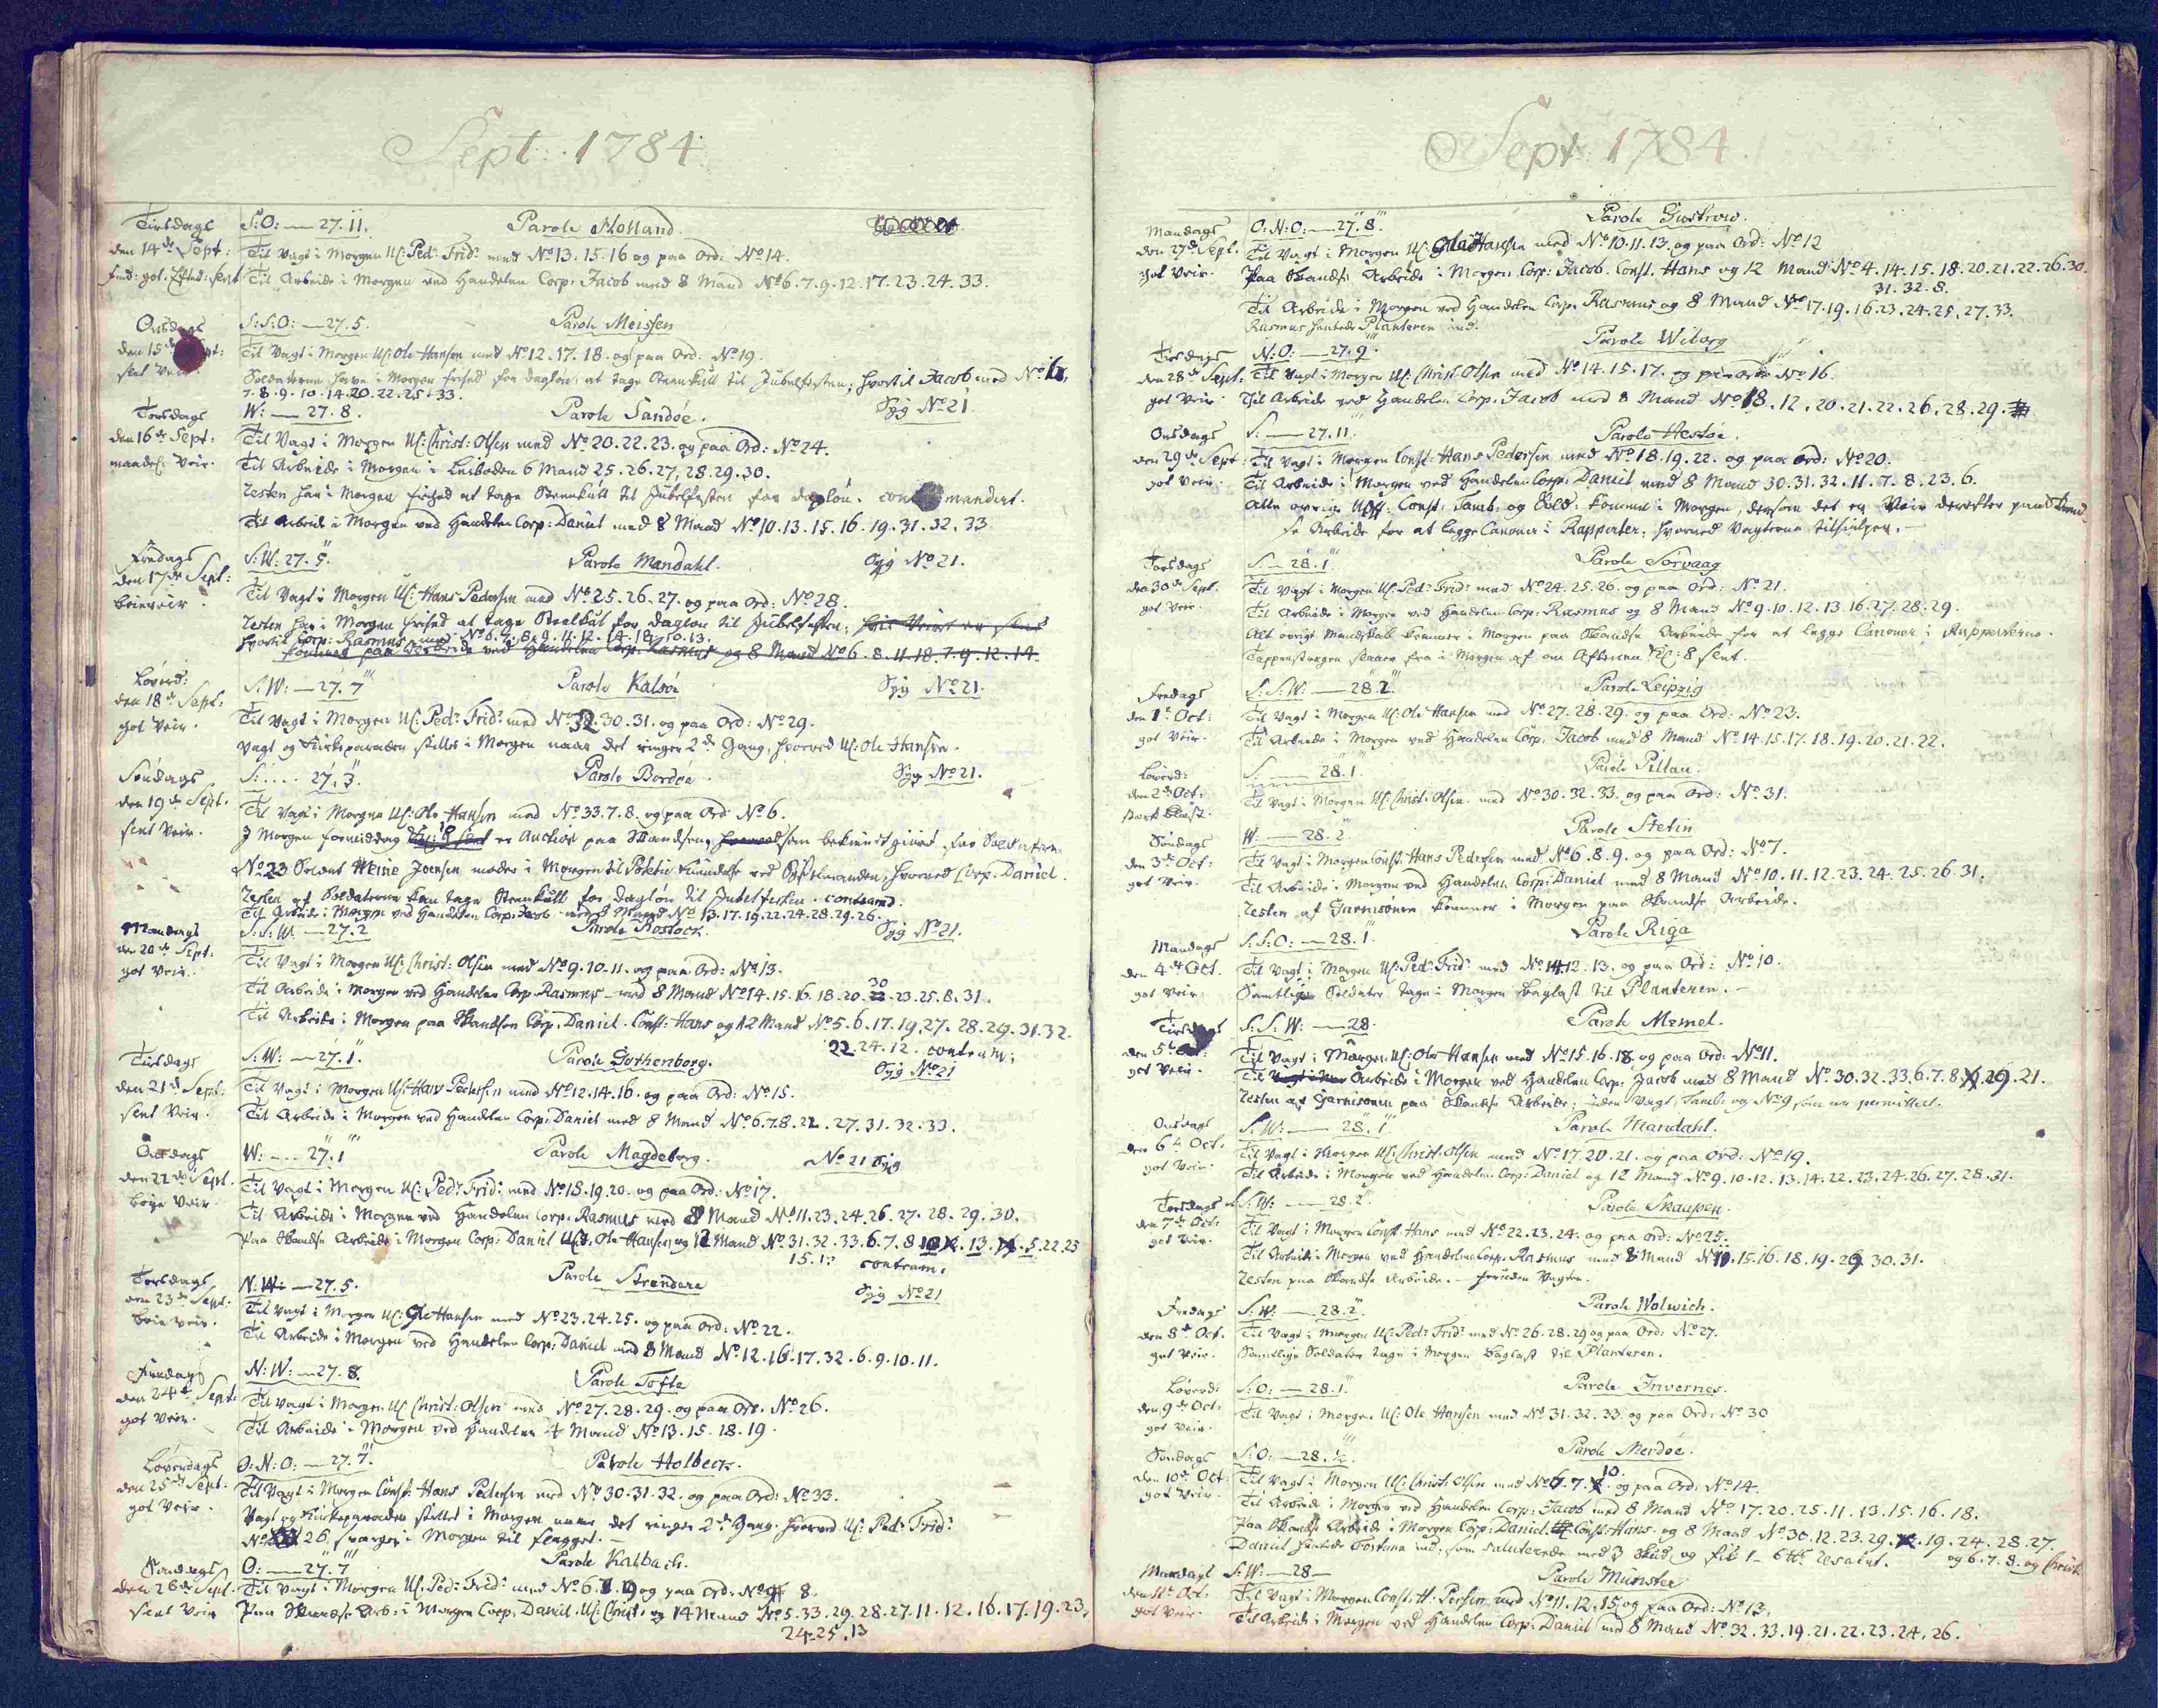 Sept: 1784.
Tirsdags S:O: — 27. 11. Parole Holland.
den 14de Sept: Til Vagt i Morgen UC: Pedr Fridr med No 13. 15. 16 og paa Ord: No 14.
Til Arbeide i Morgen ved Handelen Corp: Jacob med 8 Mand No 6. 7. 9. 12. 17. 23. 24. 33.
Onsdags S:S:O: — 27. 5. Parole Meissen
den 15de Til Vagt i Morgen UC: Ole Hansen med No 12. 17. 18. og paa Ord: No 19.
slet Veir Soldaterne have i Morgen frihed for dagløn at tage Steenkull til Jubelfesten; hvortil Jacob med No 6.
7. 8. 9. 10. 14. 20. 22. 25. 33.
Torsdags W: — 27. 8. Parole Sandøe. Syg No 21.
den 16de Sept: Til Vagt i Morgen UC: Christ: Olsen med No 20. 22. 23. og paa Ord: No 24.
maadel: Veir. Til Arbeide i Morgen i Leiboden 6 Mand 25. 26. 27. 28. 29. 30.
Resten har i Morgen frihed at tage Steenkull til Jubelfesten for dagløn. contramandert.
Til Arbeide i Morgen ved Handelen Corp: Daniel med 8 Mand No 10. 13. 15. 16. 19. 31. 32. 33
Fredags S:W: 27. 5. Parole Mandahl. Syg No 21.
den 17de Sept: Til Vagt i Morgen UC: Hans Pedersen med No 25. 26. 27. og paa Ord: No 28.
Resten har i Morgen frihed at tage Steenkul for dagløn til Jubelfesten;
hvortil Corp: Rasmus med No 6. 7. 8. 9. 11. 12. 14. 18. 10. 13.
kommer paa Arbeide ved Handelen Corp: Rasmus og 8 Mand No 6. 8. 11. 18. 7. 9. 12. 14.
Løverd: S:W: — 27. 7''' Parole Kalsøe Syg No 21.
den 18de Sept: Til Vagt i Morgen UC: Pedr Fridr med No 32. 30. 31. og paa Ord: No 29.
got Veir. Vagt og Kirkeparaden stilles i Morgen naar det ringer 2de Gang, hvorved UC: Ole Hansen.
Søndags S: .... 27. 3. Parole Bordøe. Syg No 21.
den 19de Sept. Til Vagt i Morgen UC: Ole Hansen med No 33. 7. 8. og paa Ord No 6.
slet Veir. I Morgen formiddag er Auction paa Skandsen, som bekiendtgiøres for Soldaterne
No 23 Soldat Heine Joensen møder i Morgen til hvorved Corp: Daniel.
Resten af Soldaterne kan tage Steenkull for dagløn til Jubelfesten. contramd:
Til Arbeide i Morgen ved Handelen Corp: Jacob med 8 Mand No 13. 17. 19. 22. 24. 28. 29. 26.
Mandags S:S:W: — 27. 2 Parole Rostock. Syg No 21.
den 20de Sept: Til Vagt i Morgen UC: Christ: Olsen med No 9. 10. 11. og paa Ord: No 13.
got Veir. Til Arbeide i Morgen ved Handelen Corp: Rasmus med 8 Mand No 14. 15. 16. 18. 20. 30 23. 25. 8. 31.
Til Arbeide i Morgen paa Skandsen Corp: Daniel. Const: Hans og 12 Mand No 5. 6. 17. 19. 27. 28. 29. 31. 32.
22. 24. 12. contram:
Tirsdags S:W: — 27. 1''. Parole Gothenborg. Syg No 21
den 21de Sept: Til Vagt i Morgen UC: Hans Pedersen med No 12. 14. 16. og paa Ord: No 15.
slet Veir. Til Arbeide i Morgen ved Handelen Corp: Daniel med 8 Mand No 6. 7. 8. 22. 27. 31. 32. 33.
Onsdags W: — 27. 1''' Parole Magdeborg. No 21 Syg
den 22de Sept. Til Vagt i Morgen UC: Pedr Fridr med No 18. 19. 20. og paa Ord: No 17.
bøye Veir. Til Arbeide i Morgen ved Handelen Corp: Rasmus med 8 Mand No 11. 23. 24. 26. 27. 28. 29. 30.
Paa Skandse Arbeide i Morgen Corp: Daniel UC: Ole Hansen og 12 Mand No 31. 32. 33. 6. 7. 8. 13. 5. 22. 25
contram:
Torsdags N:W: — 27. 5. Parole Strendere Syg No 21
den 23de Sept. Til Vagt i Morgen UC: Ole Hansen med No 23. 24. 25. og paa Ord: No 22.
bøie Veir. Til Arbeide i Morgen ved Handelen Corp: Daniel med 8 Mand No 12. 16. 17. 32. 6. 9. 10. 11.
Fredags N:W: — 27. 8. Parole Tofte
den 24de Sept: Til Vagt i Morgen UC: Christ: Olsen med No 27. 28. 29. og paa Ord: No 26.
got Veir. Til Arbeide i Morgen ved Handelen 4 Mand No 13. 15. 18. 19.
Løverdags O:N:O: — 27. 7'''. Parole Holbeck.
den 25de Sept. Til Vagt i Morgen Const: Hans Pedersen med No 30. 31. 32. og paa Ord: No 33.
got Veir. Vagt og Kirkeparaden stilles i Morgen naar det ringer 2de Gang. hvorved UC: Pedr Fridr
No 26. i Morgen til flagget.
Søndags O: — 27. 7''' Parole Kalbach.
den 26de Sept. Til Vagt i Morgen UC: Pedr Fridr med No 6. 7. 9 og paa Ord: No 8.
slet Veir Paa Skandse Arb: i Morgen Corp: Daniel. UC: Christ: og 14 Mand No 5. 33. 29. 28. 27. 11. 12. 16. 17. 19. 23.
24. 25. 13
Sept: 1784.
Mandags O:N:O: — 27. 8''' Parole Gustrow.
den 27de Sept. Til Vagt i Morgen UC: Ole Hansen med No 10. 11. 13. og paa Ord: No 12
got Veir. Paa Skandse Arbeide i Morgen Corp: Jacob. Const. Hans og 12 Mand No 4. 14. 15. 18. 20. 21. 22. 26. 30.
31. 32. 8.
Til Arbeide i Morgen ved Handelen Corp: Rasmus og 8 Mand No 17. 19. 16. 23. 24. 25. 27. 33.
Rasmus hentede Planteren ind.
Tirsdags N:O: — 27. 9''' Parole Wiborg
den 28de Sept: Til Vagt i Morgen UC: Christ: Olsen med No 14. 15. 17. og paa Ord: No 16.
got Veir. Til Arbeide ved Handelen Corp: Jacob med 8 Mand No 18. 12. 20. 21. 22. 26. 28. 29.
Onsdags S: — 27. 11''' Parole Hestøe.
den 29de Sept: Til Vagt i Morgen Const: Hans Pedersen med No 18. 19. 22. og paa Ord: No 20.
got Veir. Til Arbeide i Morgen ved Handelen Corp: Daniel med 8 Mand 30. 31. 32. 11. 7. 8. 23. 6.
Alle øvrige UOff: Const: Tamb: og Sold: kommer i Morgen, dersom det er Veir derefter paa Skand
se Arbeide for at legge Canoner i Rapperter, hvorved Vagterne tilhielper.
Torsdags S. — 28. 1''' Parole Sorvaag
den 30de Sept. Til Vagt i Morgen UC: Pedr Fridr med No 24. 25. 26. og paa Ord: No 21.
got Veir. Til Arbeide i Morgen ved Handelen Corp: Rasmus og 8 Mand No 9. 10. 12. 13. 16. 27. 28. 29.
Alt øvrigt Mandskab kommer i Morgen paa Skandse Arbeide for at legge Canoner i Rapperterne.
Tappenstregen slaaes fra i Morgen af om Aftenen Kl: 8 slet.
Fredags S:S:W: — 28. 2''' Parole Leipzig
den 1te Oct: Til Vagt i Morgen UC: Ole Hansen med No 27. 28. 29. og paa Ord: No 23.
got Veir. Til Arbeide i Morgen ved Handelen Corp. Jacob med 8 Mand No 14. 15. 17. 18. 19. 20. 21. 22.
Løverd: S. — 28. 1''' Parole Pillau.
den 2de Oct: Til Vagt i Morgen UC: Christ: Olsen med No 30. 32. 33. og paa Ord: No 31.
stærk blæst.
Søndags W. — 28. 2'' Parole Stetin
den 3de Oct: Til Vagt i Morgen Const: Hans Pedersen med No 6. 8. 9. og paa Ord: No 7.
got Veir. Til Arbeide i Morgen ved Handelen Corp: Daniel med 8 Mand No 10. 11. 12. 23. 24. 25. 26. 31.
Resten af Garnisonen kommer i Morgen paa Skandse Arbeide.
Mandags S:S:O: — 28. 1''' Parole Riga
den 4de Oct. Til Vagt i Morgen UC: Pedr Fridr med No 14. 12. 13. og paa Ord: No 10.
got Veir. Samtlige Soldater tage i Morgen Baglast til Planteren.
Tirsdags S:S:W: — 28. Parole Memel.
den 5te Oct: Til Vagt i Morgen UC: Ole Hansen med No 15. 16. 18 og paa Ord: No 11.
got Veir. Til Arbeide i Morgen ved Handelen Corp: Jacob med 8 Mand No 30. 32. 33. 6. 7. 8. 29. 21.
Resten af Garnisonen paa Skandse Arbeide. uden Vagt, Tamb: og No 9 som er permittert.
Onsdags S:W: — 28. 1''' Parole Mandahl.
den 6te Oct. Til Vagt i Morgen UC: Christ: Olsen med No 17. 20. 21. og paa Ord: No 19.
got Veir. Til Arbeide i Morgen ved Handelen Corp: Daniel og 12 Mand No 9. 10. 12. 13. 14. 22. 23. 24. 26. 27. 28. 31.
Torsdags S:W: — 28. 2''' Parole Skaapen.
den 7de Oct: Til Vagt i Morgen Const: Hans med No 22. 23. 24. og paa Ord: No 25.
got Veir. Til Arbeide i Morgen ved Handelen Corp: Rasmus med 8 Mand No 10. 15. 16. 18. 19. 29. 30. 31.
Resten paa Skandse Arbeide. — foruden Vagten.
Fredags S:W: — 28. 2''' Parole Wolwich.
den 8de Oct. Til Vagt i Morgen UC: Pedr Fridr med No 26. 28. 29 og paa Ord: No 27.
got Veir. Samtlige Soldater tage i Morgen Baglast til Planteren.
Løverd: S:O: — 28. 1''' Parole Invernes.
den 9de Oct: Til Vagt i Morgen UC: Ole Hansen med No 31. 32. 33. og paa Ord: No 30
got Veir.
Søndags S:O: — 28. ½''' Parole Merdøe.
den 10de Oct: Til Vagt i Morgen UC: Christ: Olsen med No 6. 7. 10. og paa Ord: No 14.
got Veir. Til Arbeide i Morgen ved Handelen Corp: Jacob med 8 Mand No 17. 20. 25. 11. 13. 15. 16. 18.
Paa Skandse Arbeide i Morgen Corp: Daniel. Const: Hans og 8 Mand No 30. 12. 23. 29. 19. 24. 28. 27.
Daniel hentede Fortuna ind. som saluterede med 3 Skud og fik 1 – 6 resalut. og 6. 7. 8. og Christ:
Mandags S:W: — 28 — Parole Münster
den 11te Oct. Til Vagt i Morgen Const: H: Persen med No 11. 12. 15. og paa Ord: No 13.
got Veir. Til Arbeide i Morgen ved Handelen Corp: Daniel med 8 Mand No 32. 33. 19. 21. 22. 23. 24. 26.